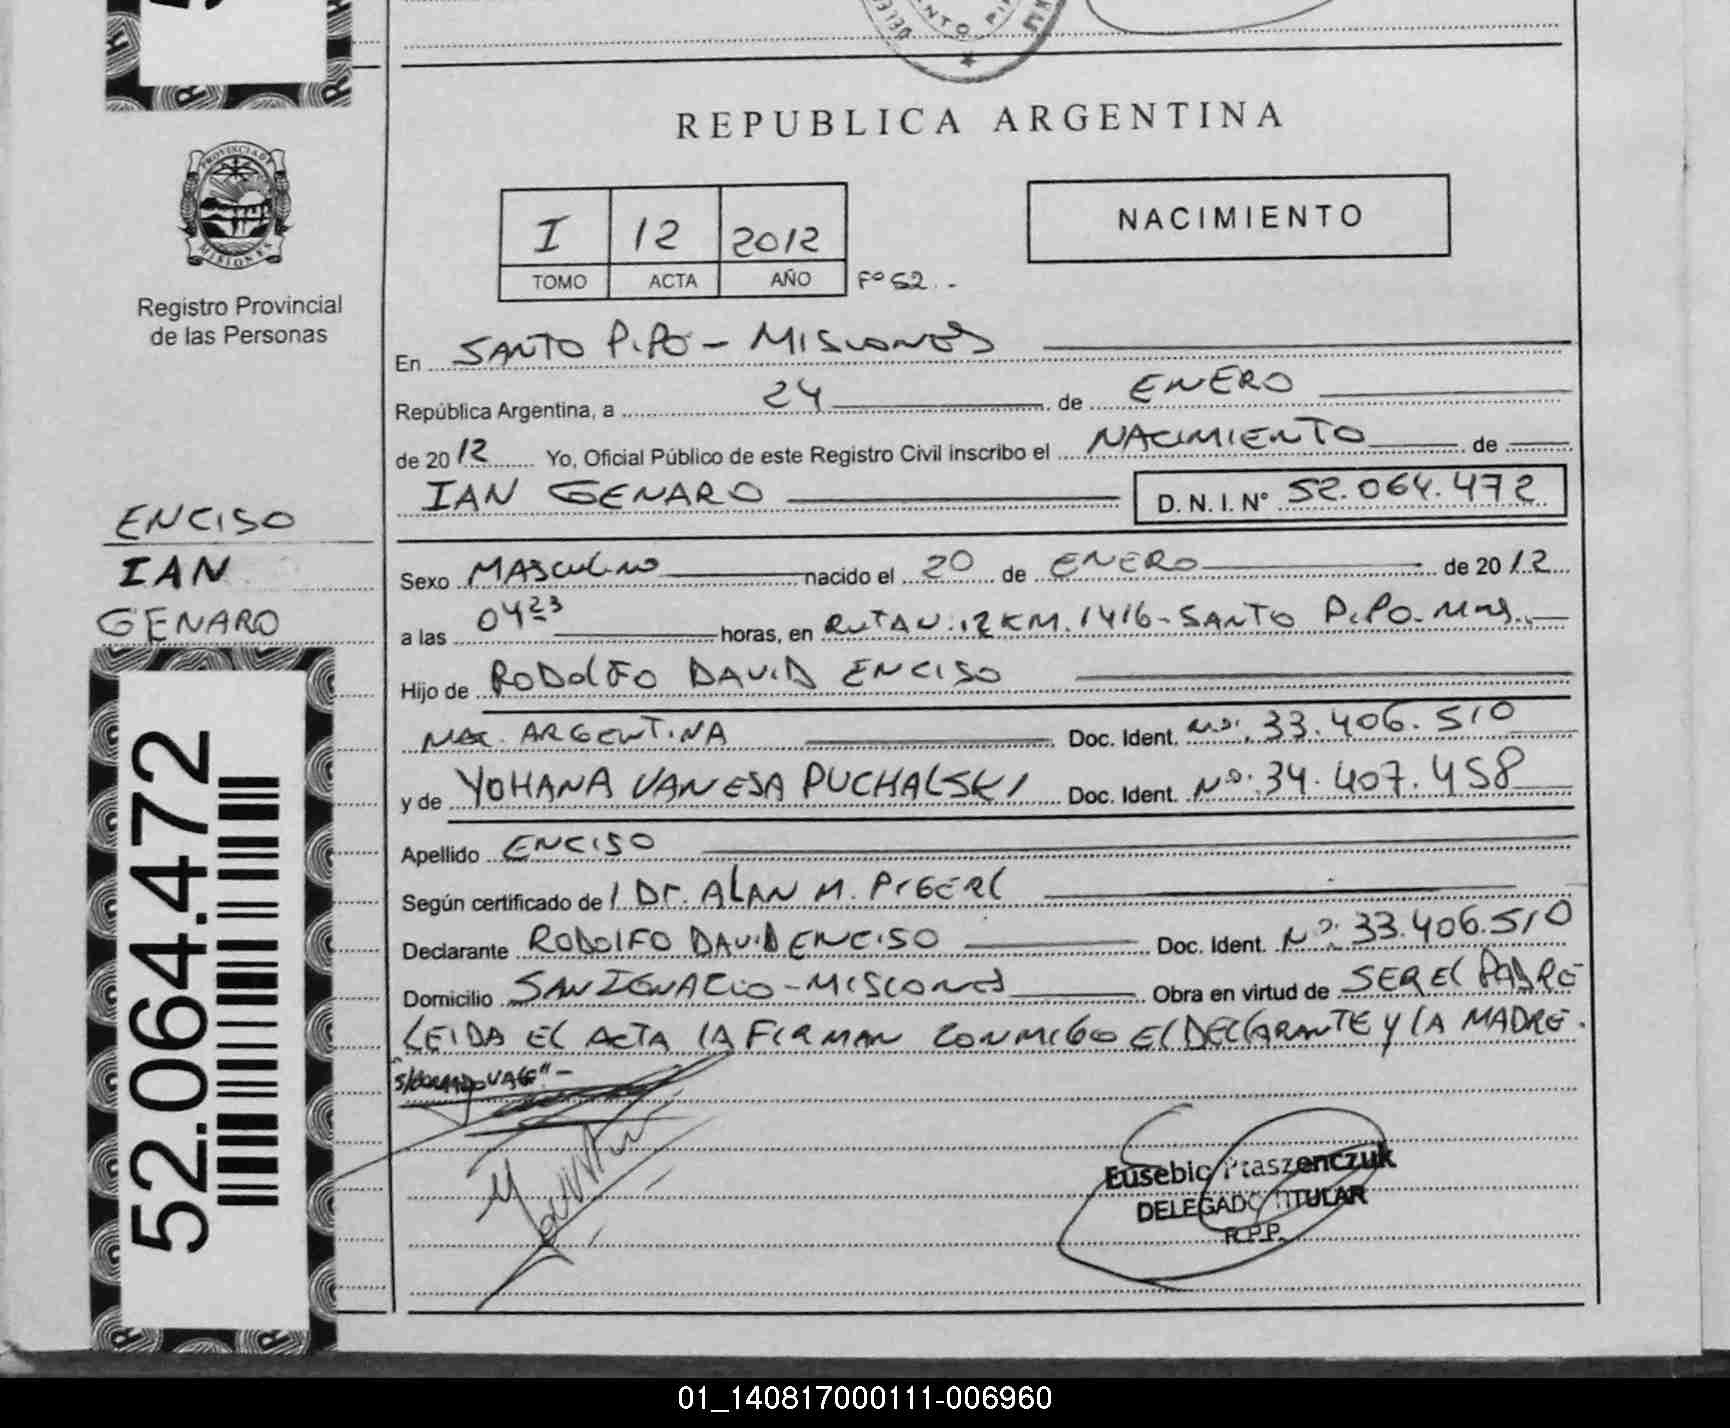 REPUBLICA ARGENTINA
PROVINCIA DE
MISIONES
Registro Provincial
de las Personas
I 12 2012
TOMO ACTA AÑO Fº 52..
NACIMIENTO
En SANTO PIPO - MISIONES
República Argentina, a 24 de ENERO
de 2012 Yo, Oficial Público de este Registro Civil inscribo el NACIMIENTO de
IAN GENARO D. N. I. Nº 52.064.472
ENCISO
IAN
GENARO
52.064.472
Sexo MASCULINO nacido el 20 de ENERO de 2012
a las 0423 horas, en RUTA N: 12 KM. 1416 - SANTO PIPO - Mns.
Hijo de RODOLFO DAVID ENCISO
NAC. ARGENTINA Doc. Ident. Nº: 33.406.510
y de YOHANA VANESA PUCHALSKI Doc. Ident. Nº: 34.407.458
Apellido ENCISO
Según certificado de l Dr. ALAN M.
Declarante RODOLFO DAVID ENCISO Doc. Ident. Nº: 33.406.510
Domicilio SAN IGNACIO - MISIONES Obra en virtud de SER EL PADRE
LEIDA EL ACTA LA FIRMAN CONMIGO EL DECLARANTE Y LA MADRE.
S/BORRADO VALE" -
Eusebio Ptaszenczuk
DELEGADO TITULAR
R.P.P.
01_140817000111-006960